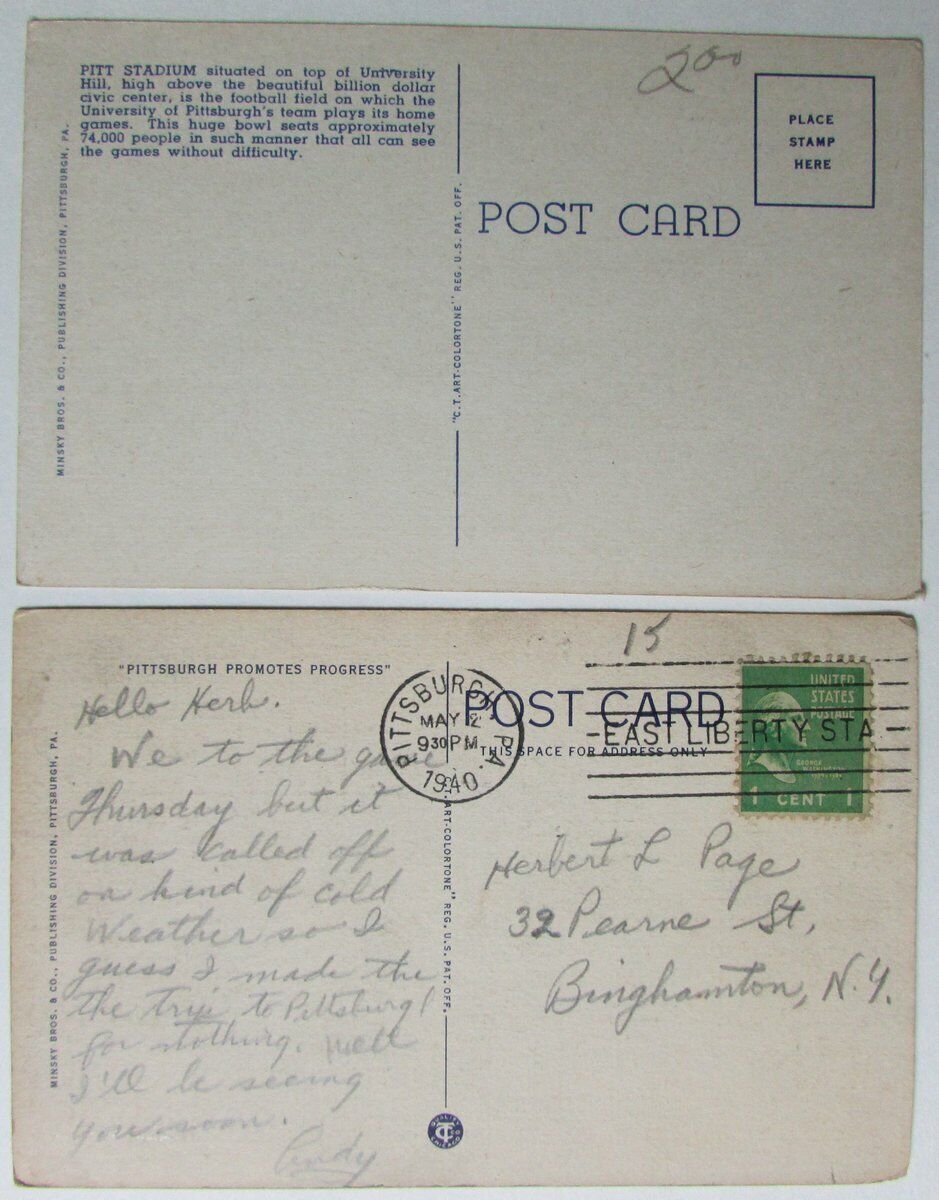 200
PITT STADIUM situated on top of University
Hill, high above the beautiful billion dollar
civic center, is the football field on which the
University of Pittsburgh's team plays its home
games. This huge bowl seats approximately
74,000 people in such manner that all can see
the games without difficulty.
MINSKY BROS. & CO., PUBLISHING DIVISION, PITTSBURGH, PA.
"C.T. ART-COLORTONE" REG. U.S. PAT. OFF.
POST CARD
PLACE
STAMP
HERE
15
"PITTSBURGH PROMOTES PROGRESS"
Hello Herb.
We to the game
Thursday but it
was called off
on kind of cold
Weather so I
guess I made the
the trip to Pittsburgh
for nothing. Well
I'll be seeing
you soon.
Andy
MINSKY BROS. & CO., PUBLISHING DIVISION, PITTSBURGH, PA.
C.T. ART-COLORTONE" REG. U.S. PAT. OFF.
PITTSBURGH, PA.
MAY 2
9 30 PM
1940
POST CARD
THIS SPACE FOR ADDRESS ONLY
EAST LIBERTY STA
UNITED
STATES
POSTAGE
GEORGE
WASHINGTON
1 CENT 1
Herbert L Page
32 Pearne St,
Binghamton, N.Y.
QUALITY
CT
CHICAGO